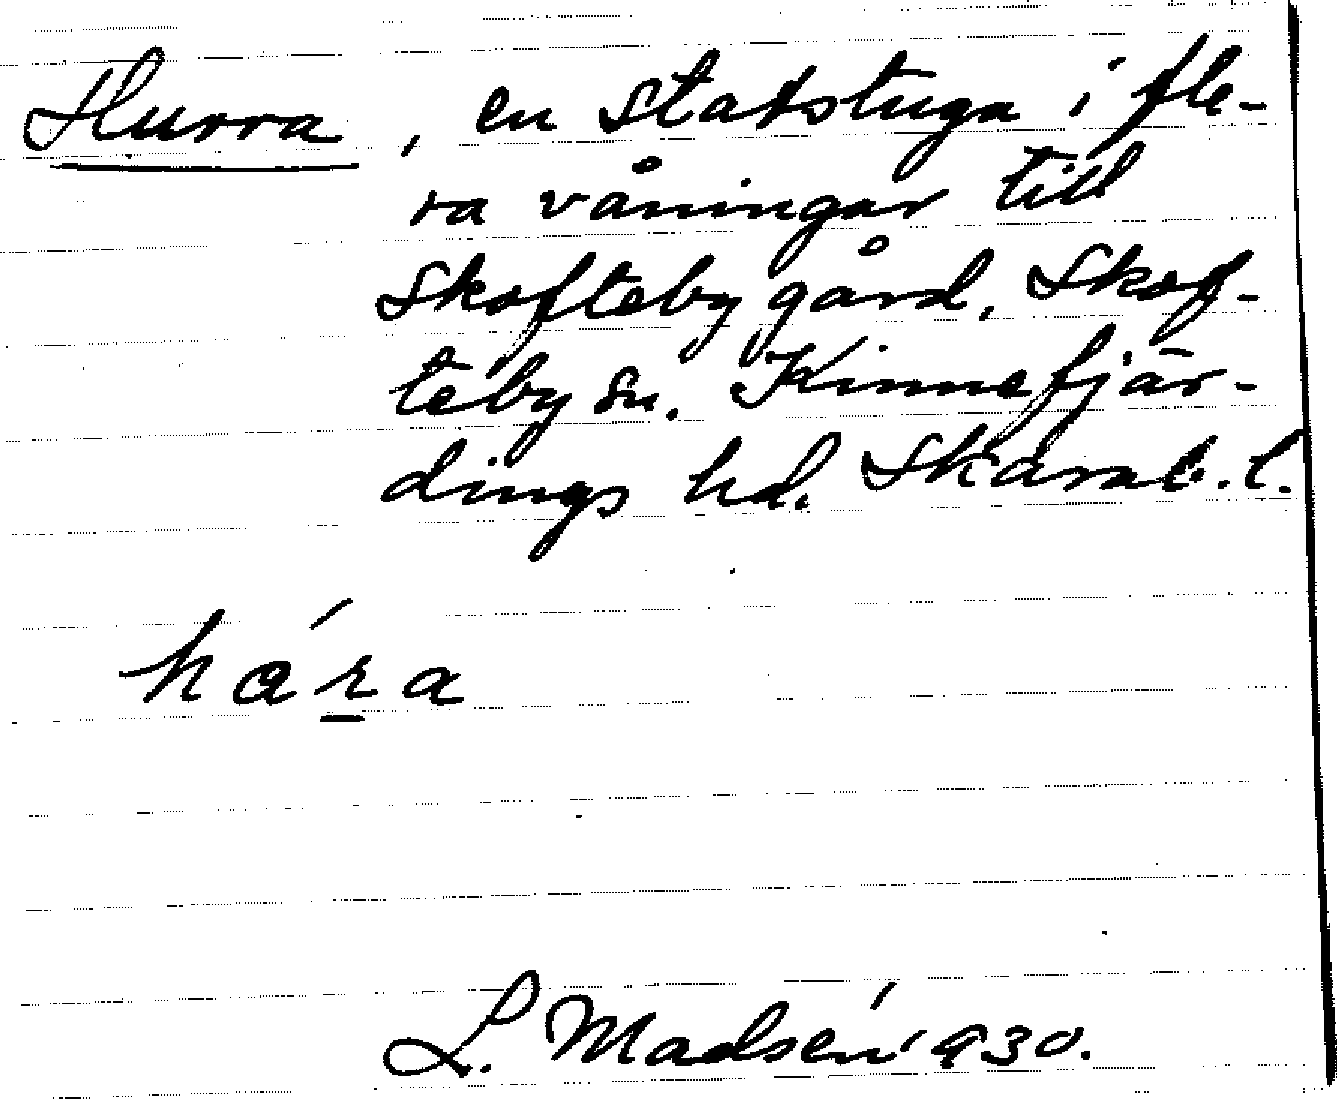 Hurra, en statstuga i fle-
ra våningar till
Skofteby gård, Skof-
teby sn. Kinnefjär-
dings hd. Skarab. l.
L. Madsén 1930.